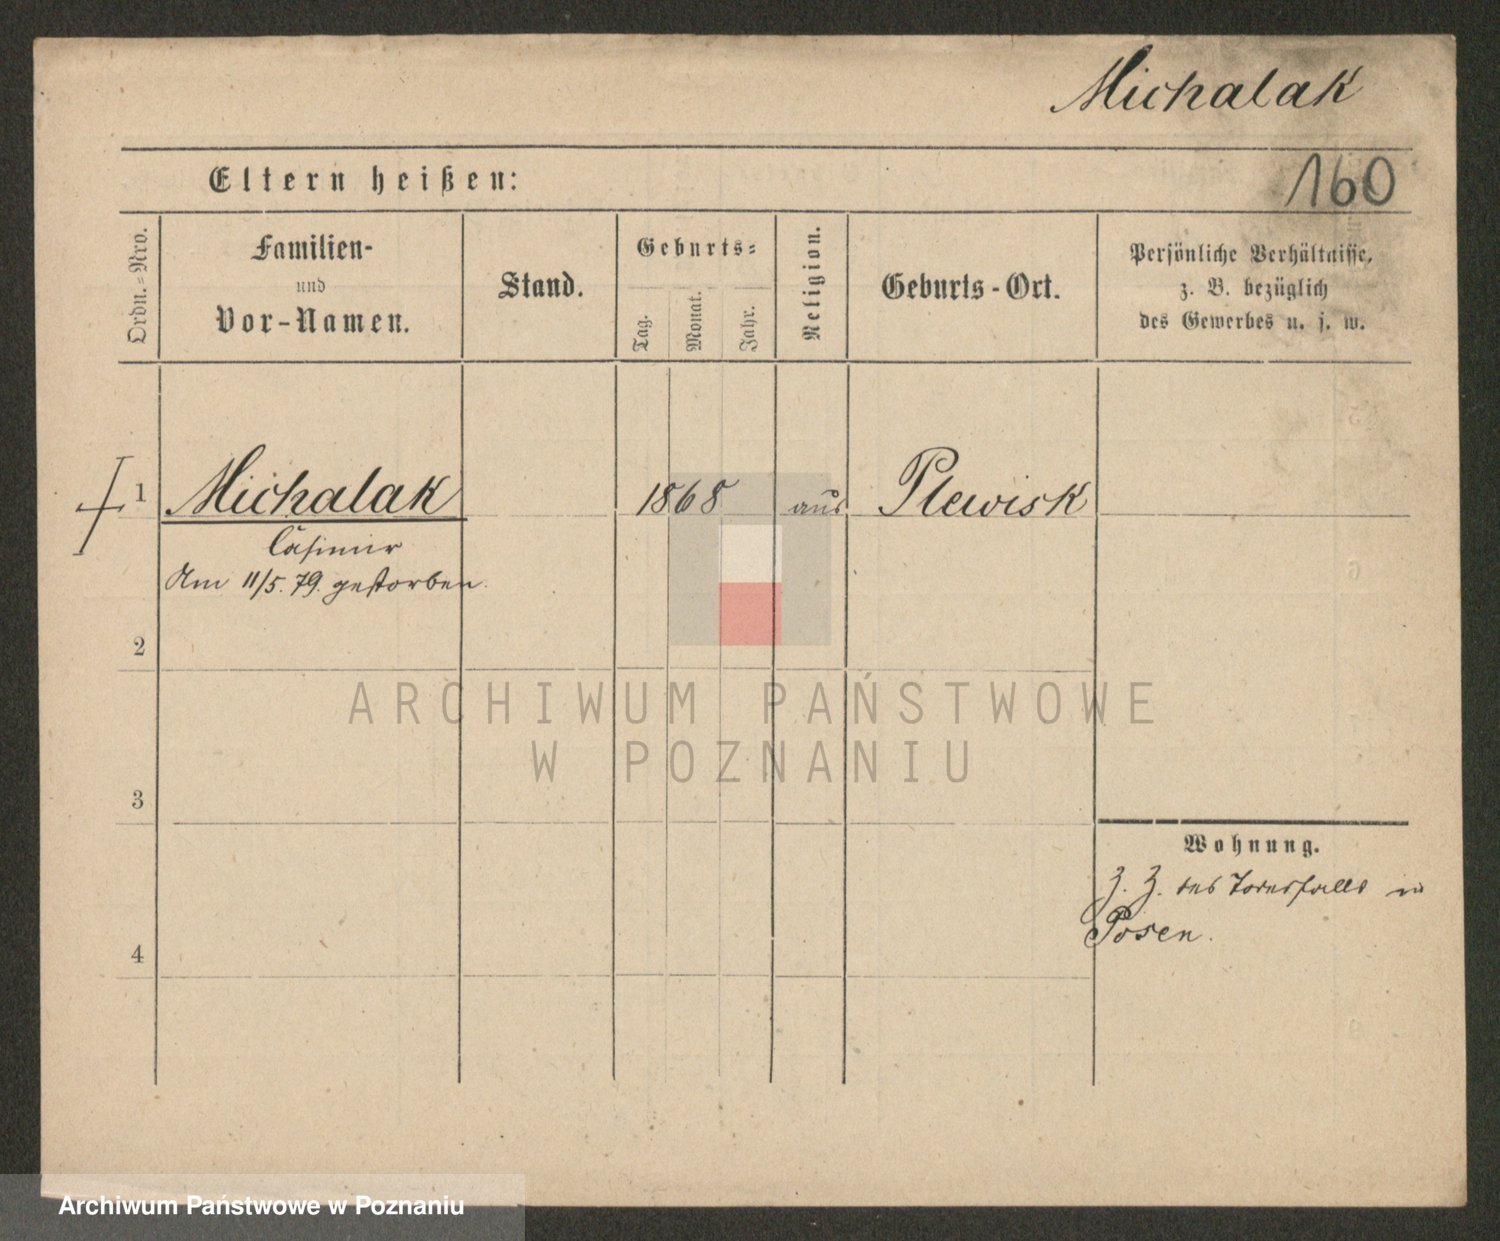 Michalak
160
Eltern heißen:
Ordn.=Nro.
Familien-
und
Vor-Namen.
Stand.
Geburts=
Tag.
Monat.
Jahr.
Religion.
Geburts-Ort.
Persönliche Verhältnisse,
z. B. bezüglich
des Gewerbes u. s. w.
1 Michalak 1868 aus Plewisk
Casimir
Am 11/5. 79. gestorben.
2
3
4
Wohnung.
Z. Z. des Todesfalls in
Posen.
ARCHIWUM PAŃSTWOWE
W POZNANIU
Archiwum Państwowe w Poznaniu